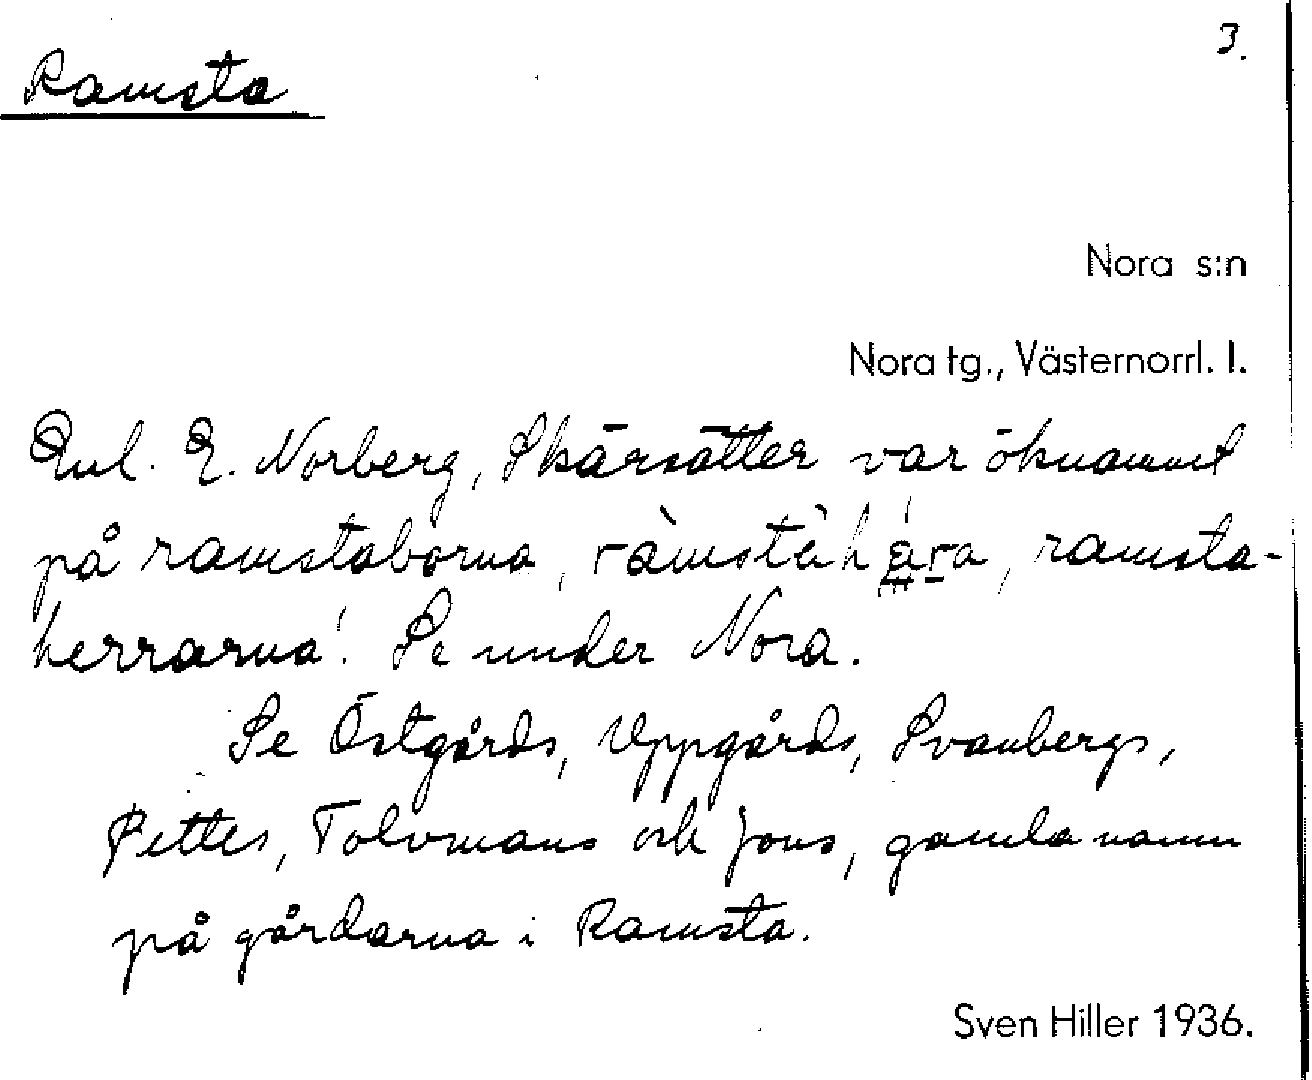 3.
Ramsta
Nora s:n
Nora tg., Västernorrl. l.
Enl. E. Norberg, Skärsätter var öknamnet
på ramstaborna, ràmstàhä́ra, ramsta-
herrarna'. Se under Nora.
Se Östgårds, Uppgårds, Svanbergs,
Pettes, Tolvmans och Jons, gamla namn
på gårdarna i Ramsta.
Sven Hiller 1936.